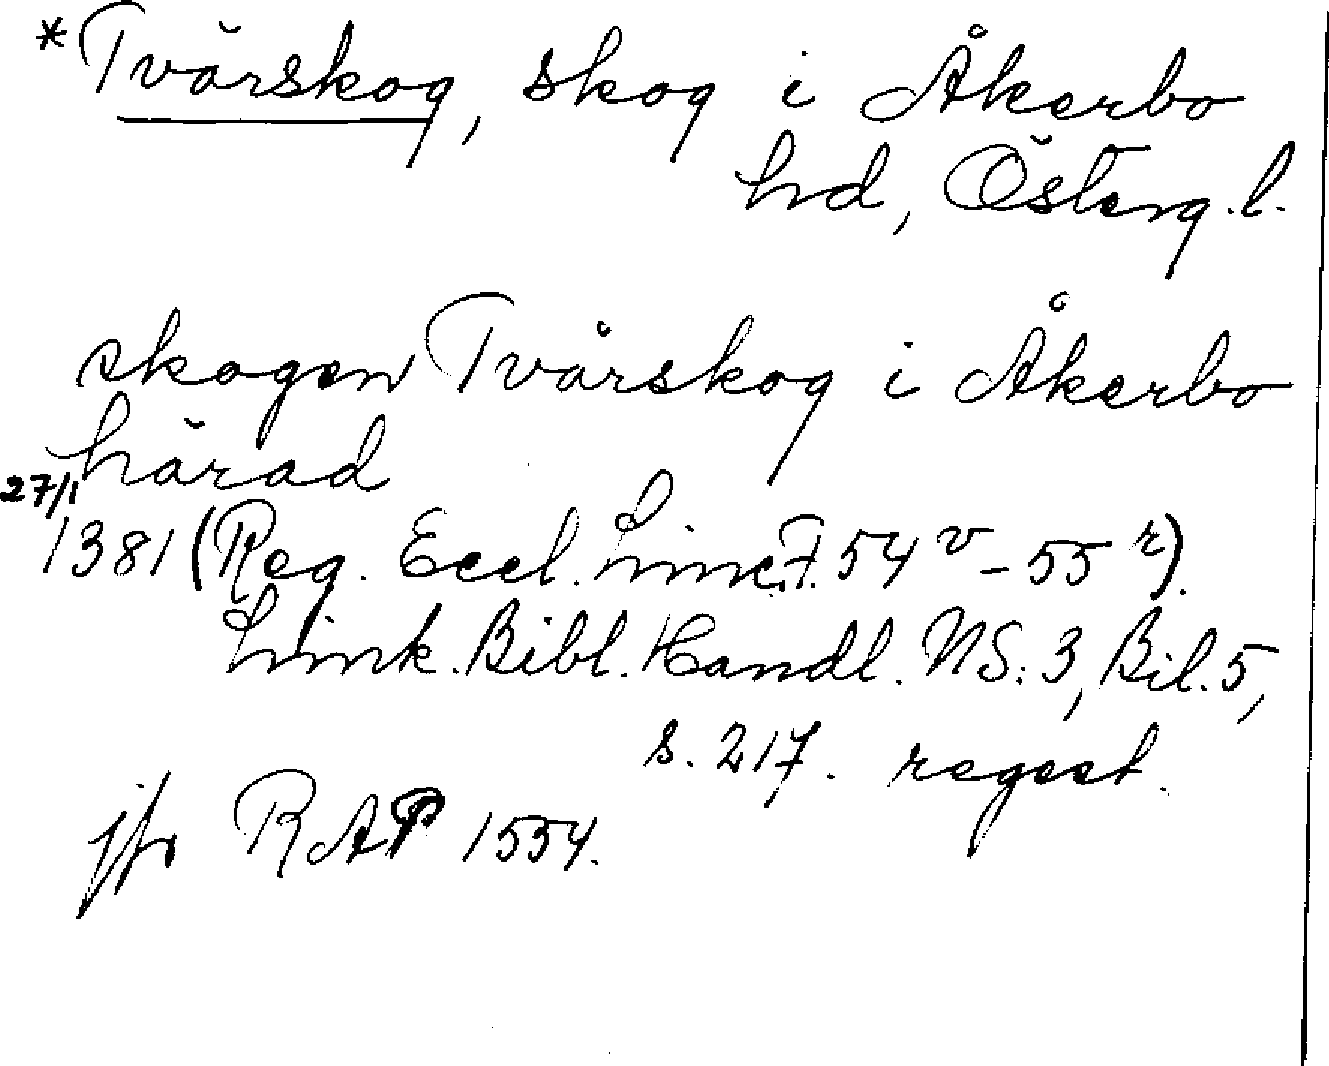 *Tvärskog, skog i Åkerbo
hd, Österg.l.
skogen Tvårskog i Åkerbo
härad
27/1
1381 (Reg. Eccl. Linc. F. 54 v - 55 r).
Link. Bibl. Handl. NS: 3, Bil. 5,
s. 217. regest.
jfr RAP 1554.